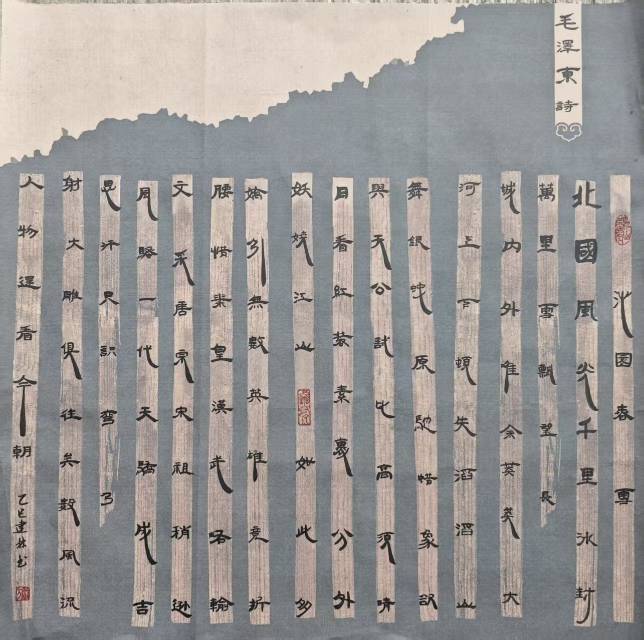 毛澤東詩
沁园春雪
北國風光千里冰封
萬里雪飄望長
城内外惟余莽莽大
河上下頓失滔滔山
舞銀蛇原馳蜡象欲
與天公試比高須晴
日看红装素裹分外
妖嬈江山如此多
嬌引無數英雄竞折
腰惜秦皇漢武略輸
文采唐宗宋祖稍遜
風騷一代天驕成吉
思汗只識彎弓
射大雕俱往矣數風流
人物還看今朝
乙巳建林书